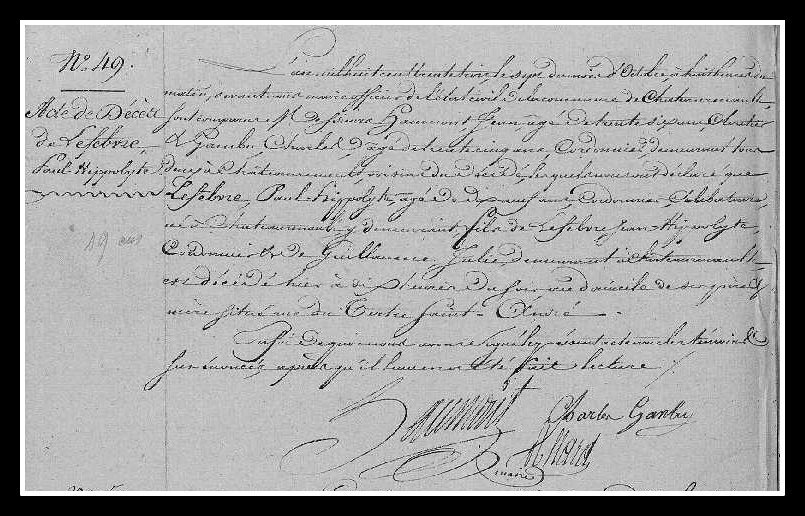 N° 49.
Acte de Décès
de Lefebvre,
Paul Hippolyte
19 ans
L'an mil huit cent trente six le sept du mois d'Octobre, à huit heures du
matin, devant nous maire officier de l'Etat civil de la commune de Chateaurenault
sont comparus M. Jean agé de trente six ans,
& Gambu Charles, agé de trente cinq ans, Cordonnier, demeurant tous
deux à Chateaurenault, voisins du décédé, lesquels nous ont déclaré que
Lefebvre, Paul Hippolyte, agé de dix neuf ans Cordonnier Célibataire,
né à Chateaurenault y demeurant, fils de Lefebvre Jean-Hippolyte,
Cordonnier & de Guillaumeau Julie, demeurant à Chateaurenault
est décédé hier à six heures du soir au domicile de ses père &
mère situé rue du Tertre Saint-André.
acte avec les témoins
sus énoncés après qu'il leur en a été fait lecture /.
Haumont
Charles Gambu
maire